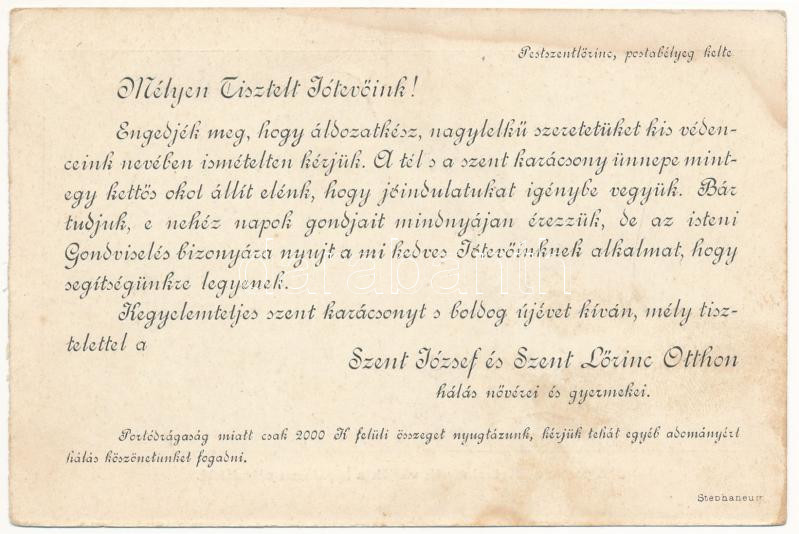 Pestszentlőrinc, postabélyeg kelte
Mélyen Tisztelt Jótevőink!
Engedjék meg, hogy áldozatkész, nagylelkű szeretetüket kis véden-
ceink nevében ismételten kérjük. A tél s a szent karácsony ünnepe mint-
egy kettős okot állít elénk, hogy jóindulatukat igénybe vegyük. Bár
tudjuk, e nehéz napok gondjait mindnyájan érezzük, de az isteni
Gondviselés bizonyára nyujt a mi kedves Jótevőinknek alkalmat, hogy
segítségünkre legyenek.
darabanth
Kegyelemteljes szent karácsonyt s boldog újévet kíván, mély tisz-
telettel a
Szent József és Szent Lőrinc Otthon
hálás nővérei és gyermekei.
Portódrágaság miatt csak 2000 K felüli összeget nyugtázunk, kérjük tehát egyéb adományért
hálás köszönetunket fogadni.
Stephaneum